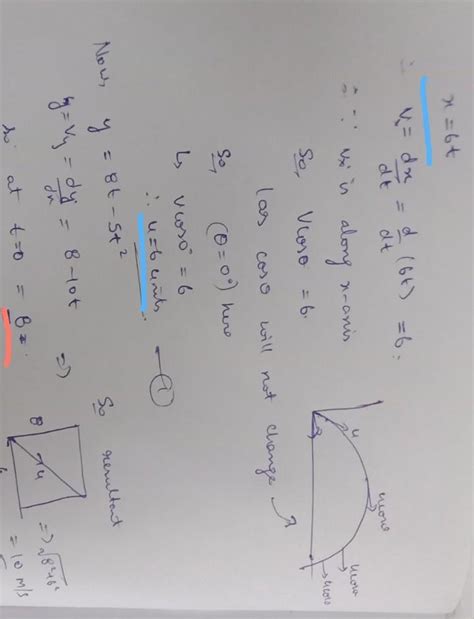 x = 6t
∴ Vx = dx/dt = d/dt (6t) = 6.
∵ u is along x-axis
So, Vcosθ = 6.
(as cosθ will not change)
So, (θ=0°) here
↳ Vcos0° = 6
∴ u = 6 units. ← (1)
Now, y = 8t - 5t²
y = Vy = dy/dx = 8 - 10t =>
so at t=0 = 8
u
θ
ucosθ
ucosθ
ucosθ
So resultant
8
u
=> √8²+6²
= 10 M/s